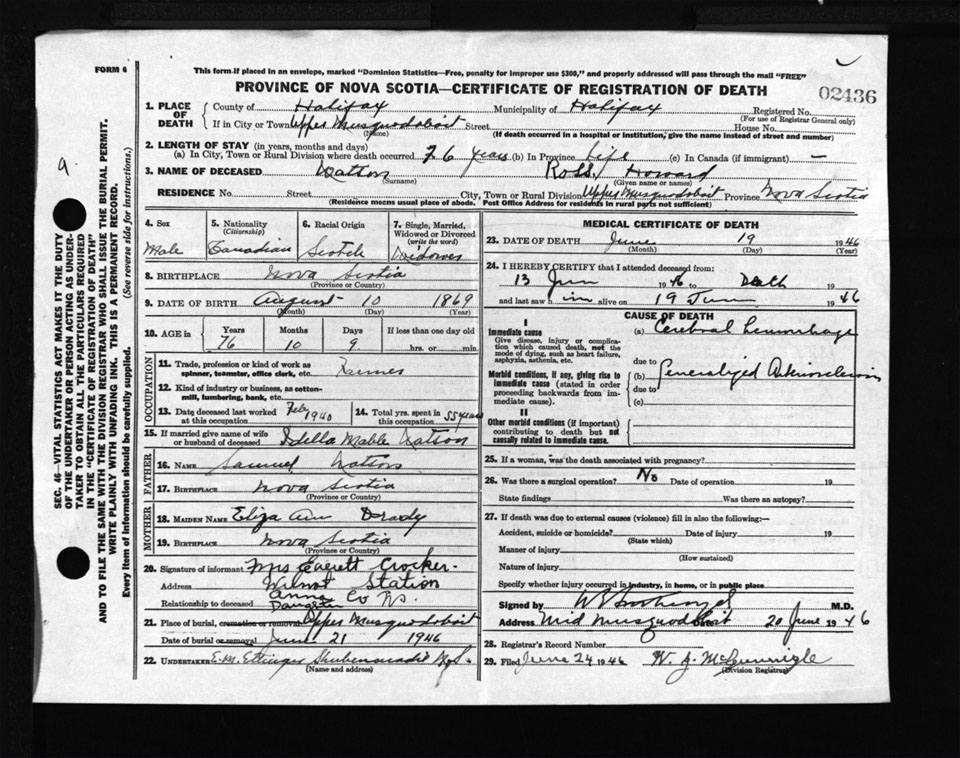 FORM 6
This form if placed in an envelope, marked "Dominion Statistics—Free, penalty for improper use $300," and properly addressed will pass through the mail "FREE"
PROVINCE OF NOVA SCOTIA—CERTIFICATE OF REGISTRATION OF DEATH
02436
9
SEC. 46—VITAL STATISTICS ACT MAKES IT THE DUTY
OF THE UNDERTAKER OR PERSON ACTING AS UNDER-
TAKER TO OBTAIN ALL THE PARTICULARS REQUIRED
IN THE "CERTIFICATE OF REGISTRATION OF DEATH"
AND TO FILE THE SAME WITH THE DIVISION REGISTRAR WHO SHALL ISSUE THE BURIAL PERMIT.
WRITE PLAINLY WITH UNFADING INK. THIS IS A PERMANENT RECORD.
Every item of Information should be carefully supplied. (See reverse side for instructions.)
1. PLACE OF DEATH
County of Halifax Municipality of Halifax Registered No.
(For use of Registrar General only)
If in City or Town Upper Musquodoboit Street House No.
(Name) (If death occurred in a hospital or institution, give the name instead of street and number)
2. LENGTH OF STAY (in years, months and days)
(a) In City, Town or Rural Division where death occurred 76 years (b) In Province Life (c) In Canada (if immigrant) —
3. NAME OF DECEASED Watson Ross Howard
(Surname) (Given name or names)
RESIDENCE No. Street City, Town or Rural Division Upper Musquodoboit Province Nova Scotia
(Residence means usual place of abode. Post Office Address for residents in rural parts not sufficient)
4. Sex
Male
5. Nationality
(Citizenship)
Canadian
6. Racial Origin
Scotch
7. Single, Married,
Widowed or Divorced
(write the word)
Widower
8. BIRTHPLACE Nova Scotia
(Province or Country)
9. DATE OF BIRTH August 10 1869
(Month) (Day) (Year)
10. AGE in Years Months Days If less than one day old
76 10 9 hrs. or min.
OCCUPATION
11. Trade, profession or kind of work as
spinner, teamster, office clerk, etc. Farmer
12. Kind of industry or business, as cotton-
mill, lumbering, bank, etc.
13. Date deceased last worked
at this occupation Feb 1940
14. Total yrs. spent in
this occupation 55 years
15. If married give name of wife
or husband of deceased Idella Mable Watson
FATHER
16. NAME Samuel Watson
17. BIRTHPLACE Nova Scotia
(Province or Country)
MOTHER
18. MAIDEN NAME Eliza Ann
19. BIRTHPLACE Nova Scotia
(Province or Country)
20. Signature of informant Mrs Everett Crocker
Address Wilmot Station
Anna Co NS.
Relationship to deceased Daughter
21. Place of burial, cremation or removal Upper Musquodoboit
Date of burial or removal June 21 1946
22. UNDERTAKER E.M. Ettinger Shubenacadie N.S.
(Name and address)
MEDICAL CERTIFICATE OF DEATH
23. DATE OF DEATH June 19 1946
(Month) (Day) (Year)
24. I HEREBY CERTIFY that I attended deceased from:
13 Jun 1946 to Death 19
and last saw him alive on 19 Jun 1946
CAUSE OF DEATH
I
Immediate cause
Give disease, injury or complica-
tion which caused death, not the
mode of dying, such as heart failure,
asphyxia, asthenia, etc.
(a) Cerebral hemorrhage
due to
Morbid conditions, if any, giving rise to
immediate cause (stated in order
proceeding backwards from im-
mediate cause).
(b) Generalized Arteriosclerosis
due to
(c)
II
Other morbid conditions (if important)
contributing to death but not
causally related to immediate cause.
25. If a woman, was the death associated with pregnancy?
26. Was there a surgical operation? No Date of operation 19
State findings Was there an autopsy?
27. If death was due to external causes (violence) fill in also the following:—
Accident, suicide or homicide? Date of injury 19
(State which)
Manner of injury
(How sustained)
Nature of injury
Specify whether injury occurred in industry, in home, or in public place
Signed by M.D.
Address Mid Musquodoboit 20 June 1946
28. Registrar's Record Number
29. Filed June 24 1946 W. J.
(Division Registrar)